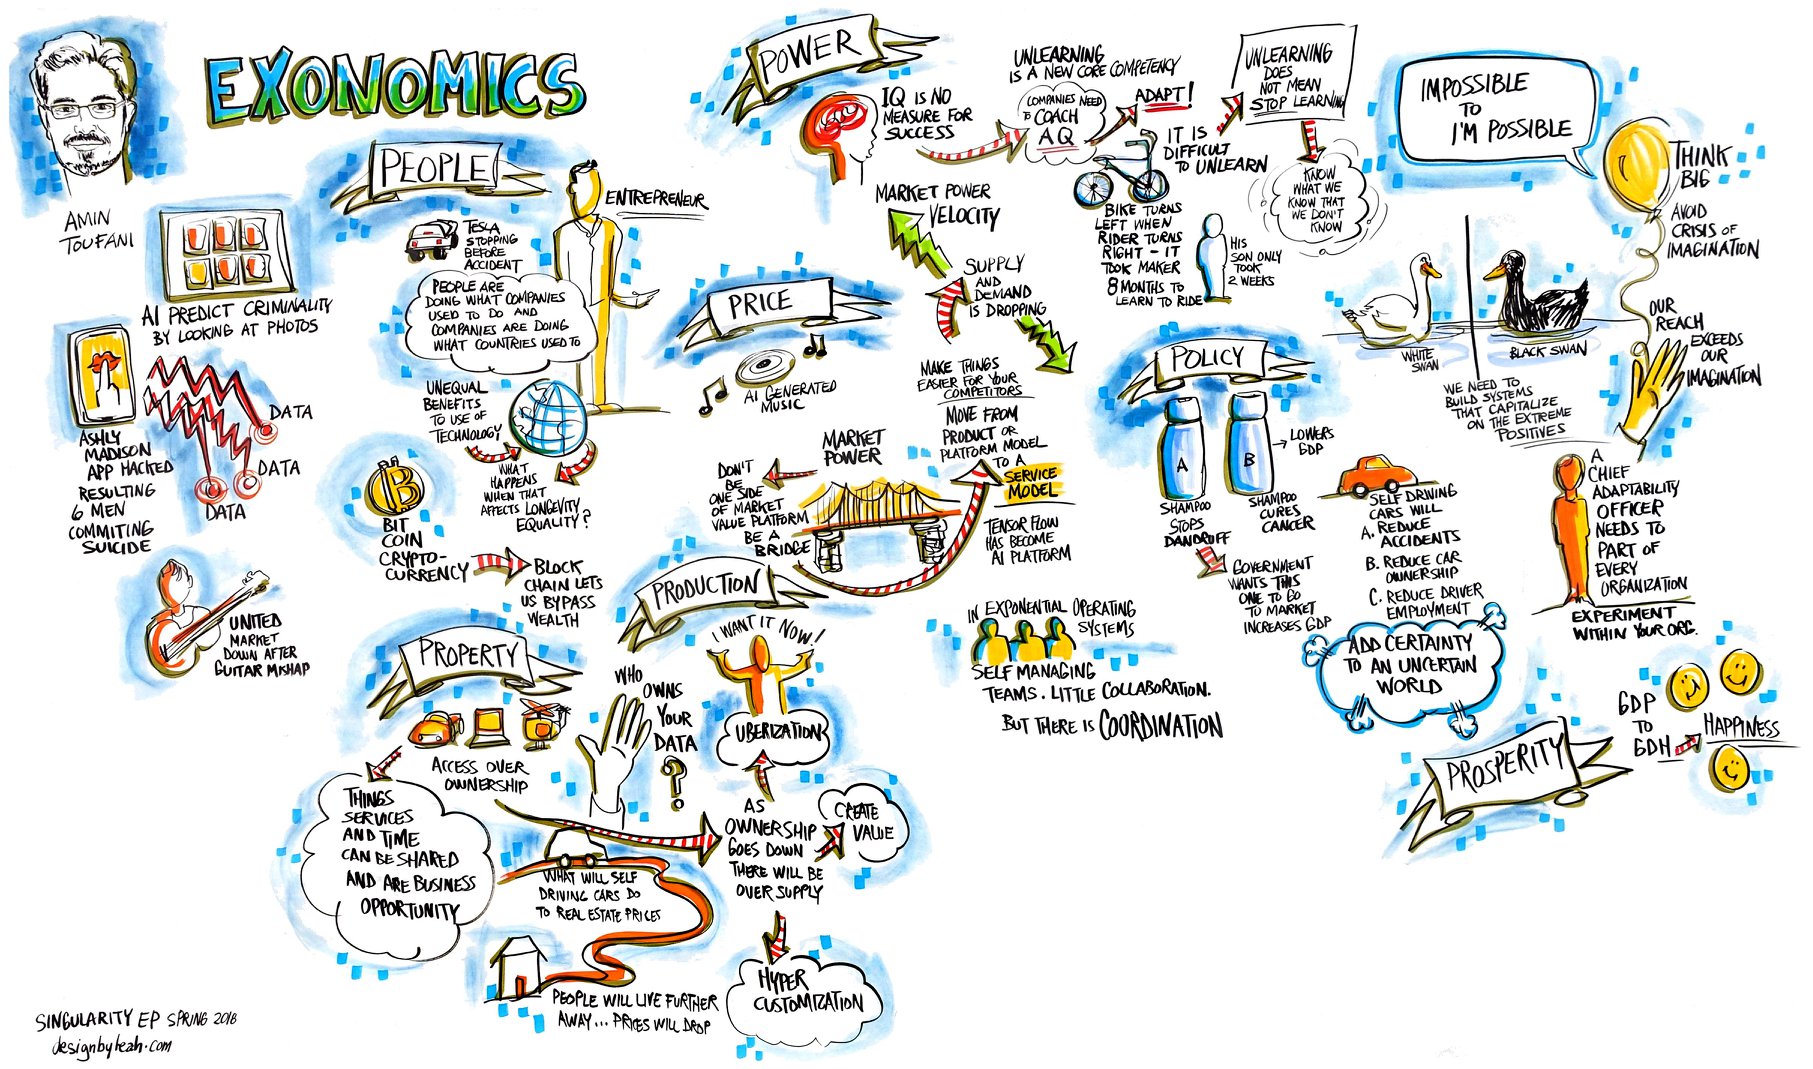 EXONOMICS
AMIN
TOUFANI
AI PREDICT CRIMINALITY
BY LOOKING AT PHOTOS
ASHLY
MADISON
APP HACKED
RESULTING
6 MEN
COMMITING
SUICIDE
DATA
DATA
DATA
UNITED
MARKET
DOWN AFTER
GUITAR MISHAP
PEOPLE
ENTREPRENEUR
TESLA
STOPPING
BEFORE
ACCIDENT
PEOPLE ARE
DOING WHAT COMPANIES
USED TO DO AND
COMPANIES ARE DOING
WHAT COUNTRIES USED TO
UNEQUAL
BENEFITS
TO USE OF
TECHNOLOGY
WHAT
HAPPENS
WHEN THAT
AFFECTS LONGEVITY
EQUALITY?
B
BIT
COIN
CRYPTO-
CURRENCY
BLOCK
CHAIN LETS
US BYPASS
WEALTH
PROPERTY
ACCESS OVER
OWNERSHIP
THINGS
SERVICES
AND TIME
CAN BE SHARED
AND ARE BUSINESS
OPPORTUNITY
WHO
OWNS
YOUR
DATA
?
WHAT WILL SELF
DRIVING CARS DO
TO REAL ESTATE PRICES
PEOPLE WILL LIVE FURTHER
AWAY... PRICES WILL DROP
PRODUCTION
I WANT IT NOW!
UBERIZATION
AS
OWNERSHIP
GOES DOWN
THERE WILL BE
OVER SUPPLY
CREATE
VALUE
HYPER
CUSTOMIZATION
IN EXPONENTIAL OPERATING
SYSTEMS
SELF MANAGING
TEAMS. LITTLE COLLABORATION.
BUT THERE IS COORDINATION
PRICE
AI GENERATED
MUSIC
MARKET POWER
VELOCITY
SUPPLY
AND
DEMAND
IS DROPPING
MAKE THINGS
EASIER FOR YOUR
COMPETITORS
MOVE FROM
PRODUCT OR
PLATFORM MODEL
TO A
SERVICE
MODEL
TENSOR FLOW
HAS BECOME
AI PLATFORM
MARKET
POWER
DON'T
BE
ONE SIDE
OF MARKET
VALUE PLATFORM
BE A
BRIDGE
POWER
IQ IS NO
MEASURE FOR
SUCCESS
UNLEARNING
IS A NEW CORE COMPETENCY
COMPANIES NEED
TO COACH
AQ
ADAPT!
IT IS
DIFFICULT
TO UNLEARN
BIKE TURNS
LEFT WHEN
RIDER TURNS
RIGHT - IT
TOOK MAKER
8 MONTHS TO
LEARN TO RIDE
HIS
SON ONLY
TOOK
2 WEEKS
UNLEARNING
DOES
NOT MEAN
STOP LEARNING
KNOW
WHAT WE
KNOW THAT
WE DON'T
KNOW
POLICY
A
B
LOWERS
GDP
SHAMPOO
STOPS
DANDRUFF
SHAMPOO
CURES
CANCER
GOVERNMENT
WANTS THIS
ONE TO GO
TO MARKET
INCREASES GDP
SELF DRIVING
CARS WILL
A. REDUCE
ACCIDENTS
B. REDUCE CAR
OWNERSHIP
C. REDUCE DRIVER
EMPLOYMENT
ADD CERTAINTY
TO AN UNCERTAIN
WORLD
IMPOSSIBLE
TO
I'M POSSIBLE
THINK
BIG
AVOID
CRISIS OF
IMAGINATION
WHITE
SWAN
BLACK SWAN
WE NEED TO
BUILD SYSTEMS
THAT CAPITALIZE
ON THE EXTREME
POSITIVES
OUR
REACH
EXCEEDS
OUR
IMAGINATION
A
CHIEF
ADAPTABILITY
OFFICER
NEEDS TO
PART OF
EVERY
ORGANIZATION
EXPERIMENT
WITHIN YOUR ORG.
PROSPERITY
GDP
TO
GDH
HAPPINESS
SINGULARITY EP SPRING 2018
designbyleah.com